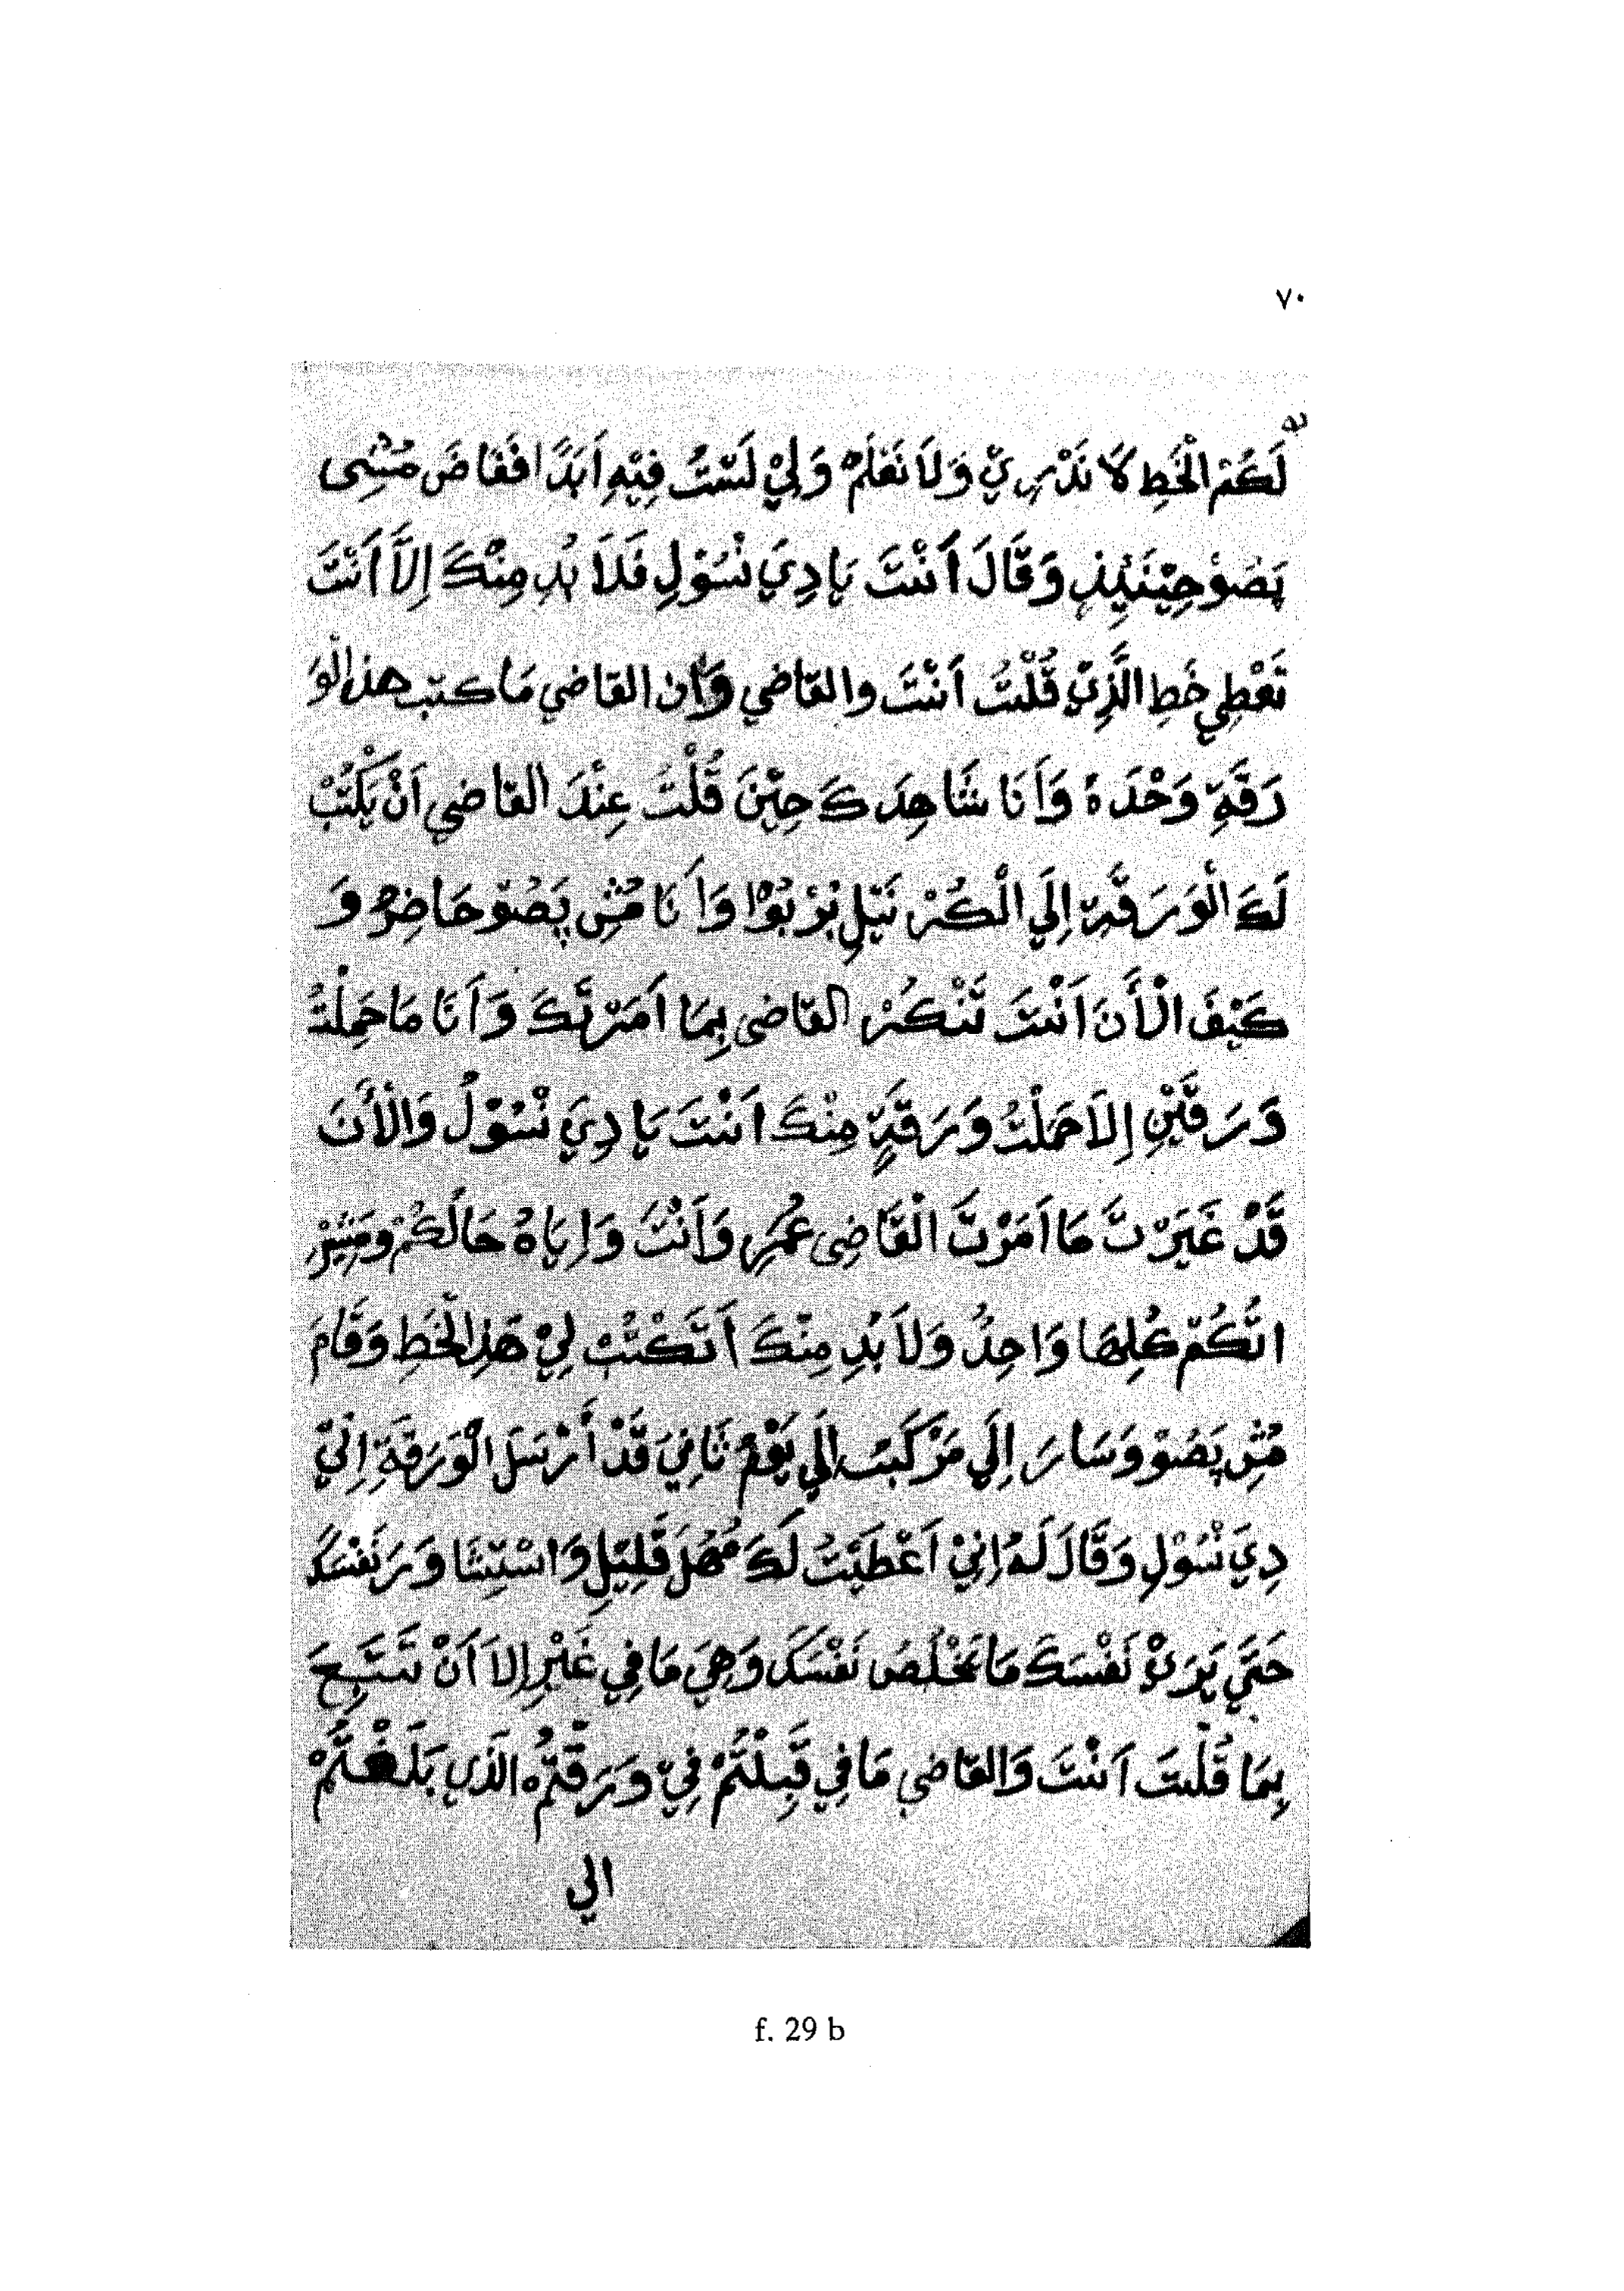 ٧٠
لَكُمْ الْخَطِ لَا نَدْرِيْ وَلَا نَعْلَمْ وَلِيْ لَسْتُ فِيْهِ اَبَدًا فَغَاضَ مُشِى
پَصُوْ حِيْنَئِذٍ وَقَالَ اَنْتَ يَا دِيَ نْسُوْلِ فَلَا بُدِ مِنْكَ إِلَّا اَنْتَ
تَعْطِي خَطِ الَّذِيْ قُلْتُ اَنْتَ والقاضي وَاِن القاضي مَا كتب هذ الْوَ
رَقَةِ وَحْدَهُ وَاَنَا شَاهِدَكَ حِيْنَ قُلْتُ عِنْدَ القاضي اَنْ يَكْتُبْ
لَكَ الْوَرَقَةِ إِلَي الْكُرْنَيْلِ بُرْبُوْا وَاَنَا مُشِ پَصُوْ حَاضِرْ وَ
كَيْفَ الْأَنَ اَنْتَ تَنْكُرْ القاضى بِمَا اَمَرْتَكَ وَاَنَا مَا حَمِلْتُ
وَرَقَتَيْنِ إِلَا حَمَلْتُ وَرَقَةٍ مِنْكَ اَنْتَ يَا دِيَ نْسُوْلُ وَالْأَنَ
قَدْ غَيَرْتَ مَا اَمَرْتَ الْقَاضِى عُمَرِ وَاَنْتَ وَاِيَاهُ حَالَكُمْ وَمَشِيْرِ
اتُكُمْ كُلِهَا وَاحِدٌ وَلَا بُدِ مِنْكَ اَتَكْتُبْ لِيْ هَذِ الْخَطِ وَقَامَ
مُشِ پَصُوْ وَسَارَ إِلَي مَرْكَبُ الَي يَوْمْ ثَانِيَ قَدْ أَرْسَلَ الْوَرَقَةَ اِلَيْ
دِيَ نْسُوْلِ وَقَالَ لَهُ اِنِيْ اَعْطَيْتُ لَكَ مُهْلَ قَلِيْلِ وَاسْتِشَا وَرَ نَفْسَكَ
حَتَّي يَرَيْ نَفْسَكَ مَا تَخْلُصُ نَفْسَكَ وَهِيَ مَا فِي غَيْرِ إِلَا اَنْ تَسْتَبِحَ
بِمَا قُلْتَ اَنْتَ وَالقاضي مَا فِي قَبِلْتُمْ فِيْ وَرَقَتُمْ الذي بَلَغْتُمْ
الي
f. 29 b